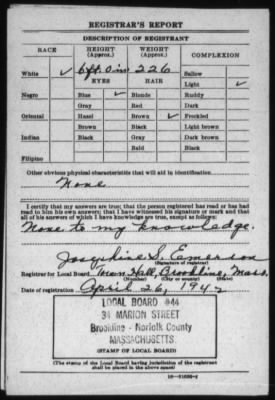 REGISTRAR'S REPORT
DESCRIPTION OF REGISTRANT
RACE HEIGHT (Approx.) WEIGHT (Approx.) COMPLEXION
White ✓ 6 ft. 0 in 226 Sallow
EYES HAIR Light ✓
Negro Blue ✓ Blonde Ruddy
Gray Red Dark
Oriental Hazel Brown ✓ Freckled
Brown Black Light brown
Indian Black Gray Dark brown
Bald Black
Filipino
Other obvious physical characteristics that will aid in identification
None
I certify that my answers are true; that the person registered has read or has
read to him his own answers; that I have witnessed his signature or mark and that
all of his answers of which I have knowledge are true, except as follows:
None to my knowledge.
Josephine S. Emerson
(Signature of registrar)
Registrar for Local Board Town Hall, Brookline, Mass.
(Number) (City or county) (State)
Date of registration April 26, 1942
LOCAL BOARD #44
34 MARION STREET
Brookline - Norfolk County
MASSACHUSETTS
(STAMP OF LOCAL BOARD)
(The stamp of the Local Board having jurisdiction of the registrant
shall be placed in the above space)